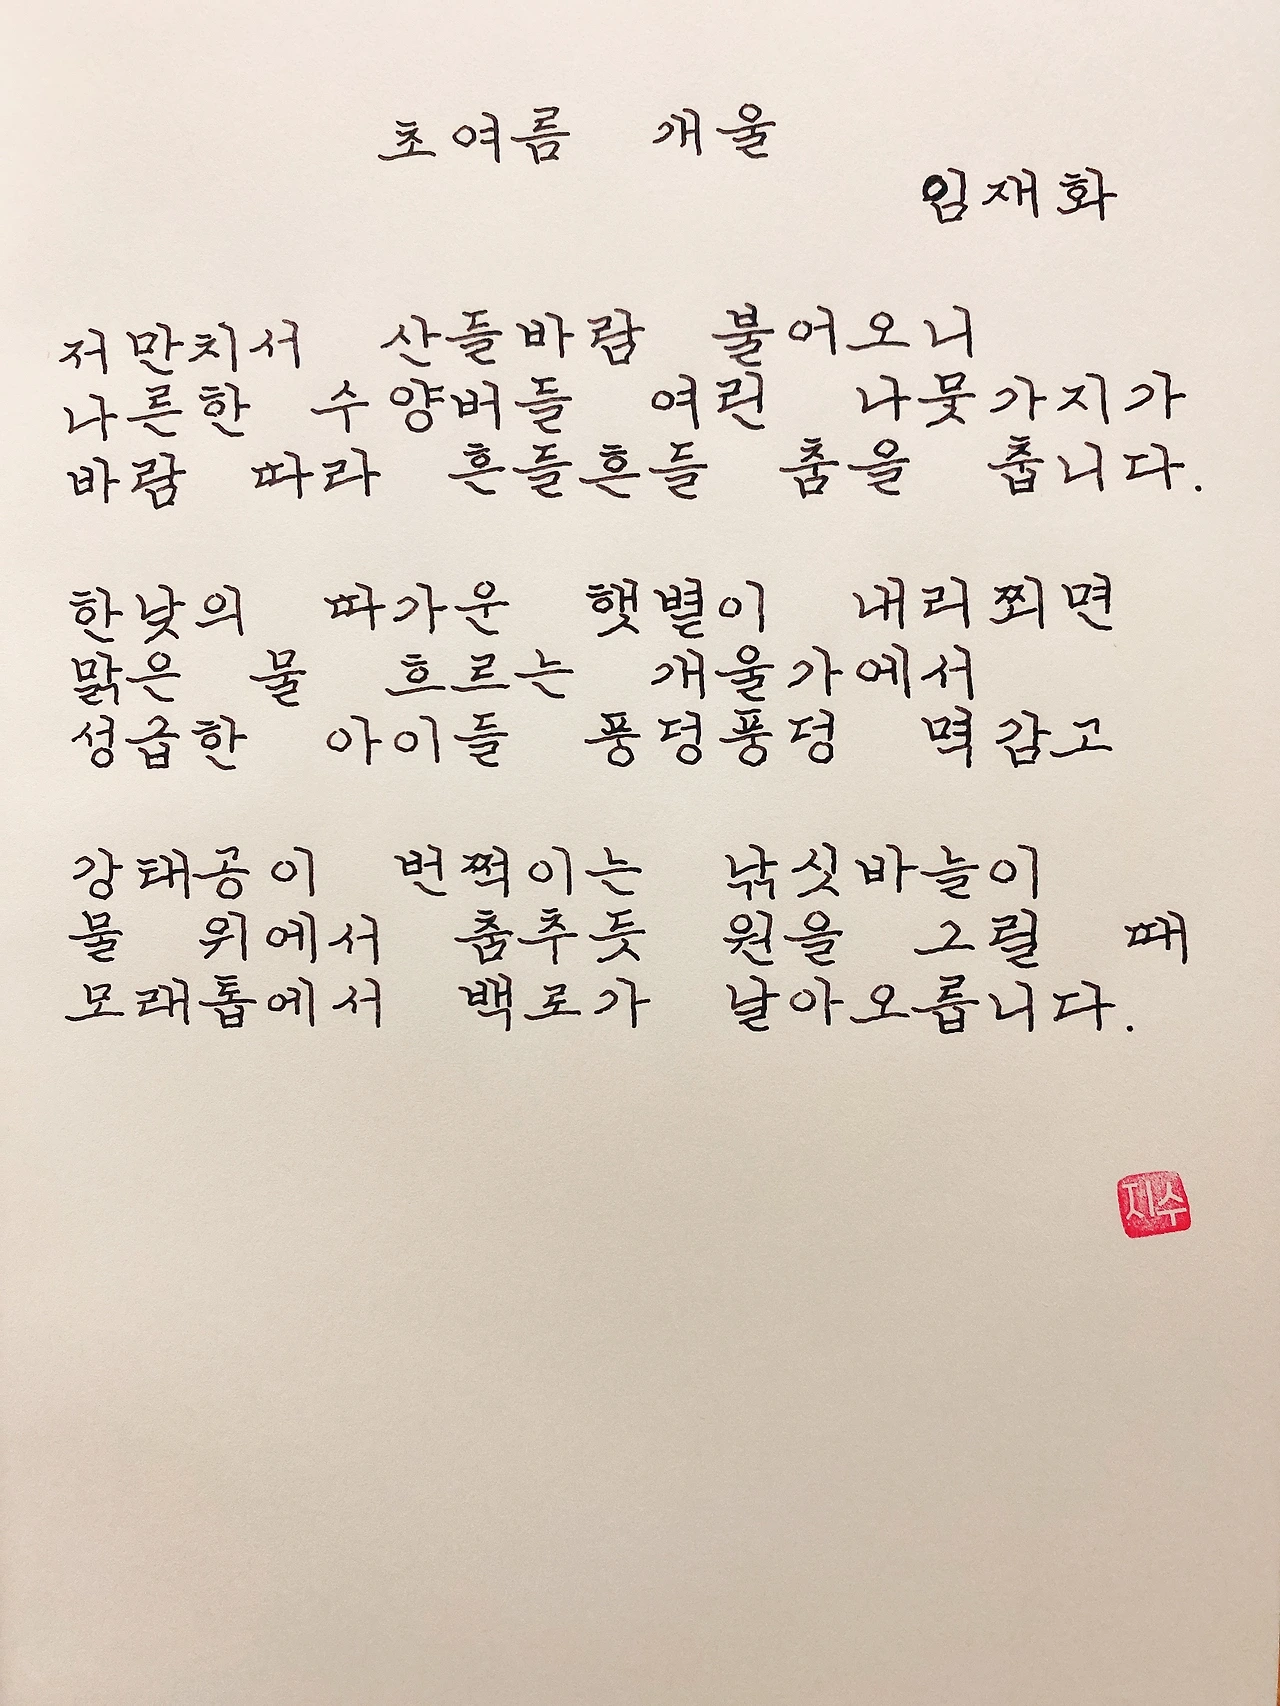 초여름 개울
임재화
저만치서 산들바람 불어오니
나른한 수양버들 여린 나뭇가지가
바람 따라 흔들흔들 춤을 춥니다.
한낮의 따가운 햇볕이 내리쬐면
맑은 물 흐르는 개울가에서
성급한 아이들 풍덩풍덩 멱감고
강태공이 번쩍이는 낚싯바늘이
물 위에서 춤추듯 원을 그릴 때
모래톱에서 백로가 날아오릅니다.
지수